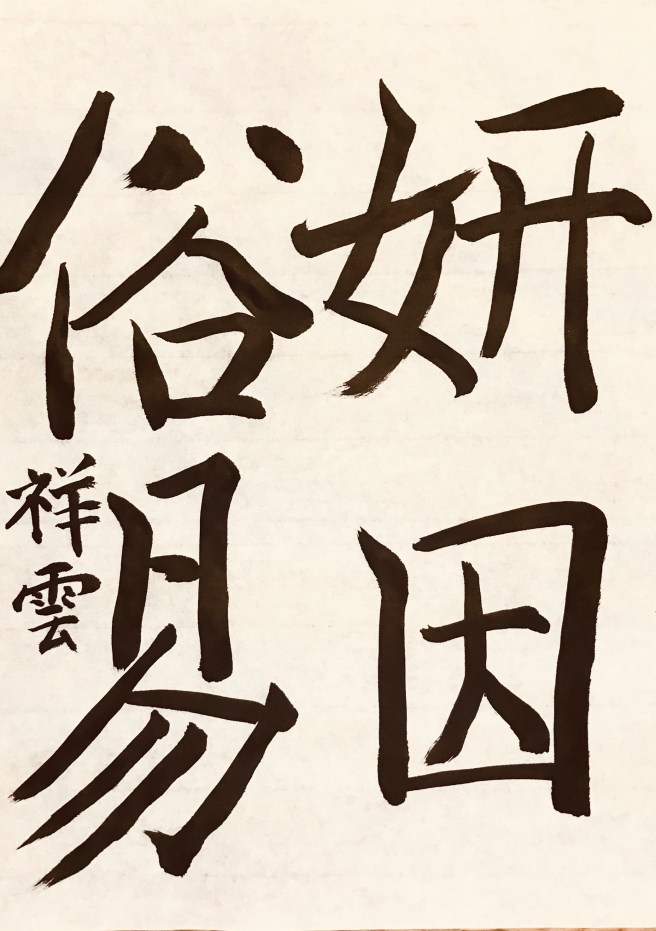 妍因
俗易
祥雲